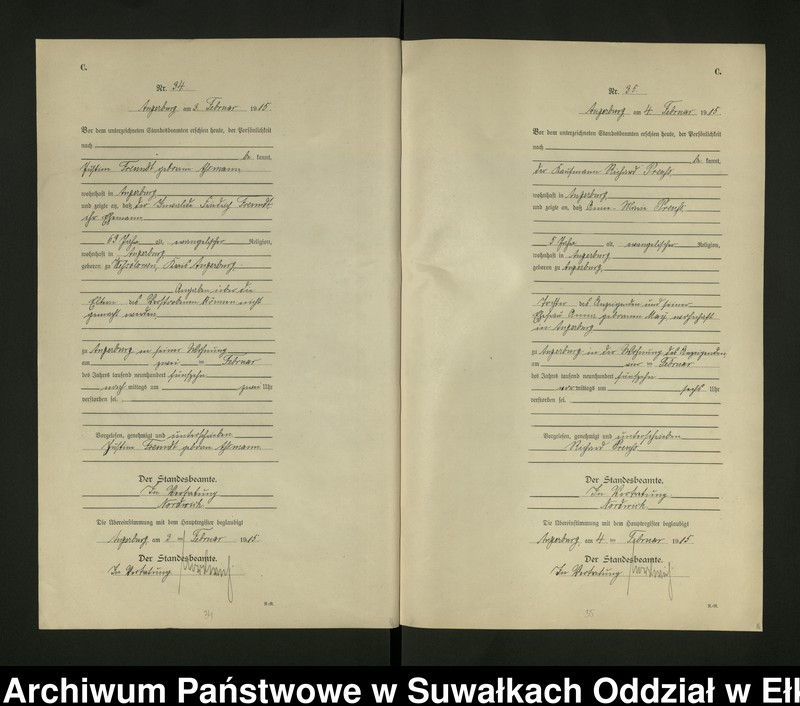 C.
Nr. 34
Angerburg am 3. Februar 1915.
Vor dem unterzeichneten Standesbeamten erschien heute, der Persönlichkeit
nach
be kannt,
geborene
wohnhaft in Angerburg
und zeigte an, daß der Invalide Friedrich
ihr Ehemann
62 Jahre alt, evangelischer Religion,
wohnhaft in Angerburg
geboren zu Kreis Angerburg,
Angaben über die
Eltern des Verstorbenen können nicht
gemacht werden
zu Angerburg in seiner Wohnung
am zwei ten Februar
des Jahres tausend neunhundert fünfzehn
nach mittags um zwei Uhr
verstorben sei.
Vorgelesen, genehmigt und unterschrieben
geborene
Der Standesbeamte.
In Vertretung
Nordwich
Die Übereinstimmung mit dem Hauptregister beglaubigt
Angerburg am 3 ten Februar 1915.
Der Standesbeamte.
In Vertretung
34
C.
Nr. 35
Angerburg am 4. Februar 1915.
Vor dem unterzeichneten Standesbeamten erschien heute, der Persönlichkeit
nach
be kannt,
der Kaufmann Richard Preuß
wohnhaft in Angerburg
und zeigte an, daß Anna-Maria Preuß
5 Jahre alt, evangelischer Religion,
wohnhaft in Angerburg
geboren zu Angerburg,
Tochter des Anzeigenden und seiner
Ehefrau Anna geborenen May, wohnhaft
in Angerburg
zu Angerburg in der Wohnung des Anzeigenden
am vier ten Februar
des Jahres tausend neunhundert fünfzehn
vor mittags um sechs Uhr
verstorben sei.
Vorgelesen, genehmigt und unterschrieben
Richard Preuß
Der Standesbeamte.
In Vertretung
Nordwich
Die Übereinstimmung mit dem Hauptregister beglaubigt
Angerburg am 4 ten Februar 1915.
Der Standesbeamte.
In Vertretung
35
Archiwum Państwowe w Suwałkach Oddział w Ełk